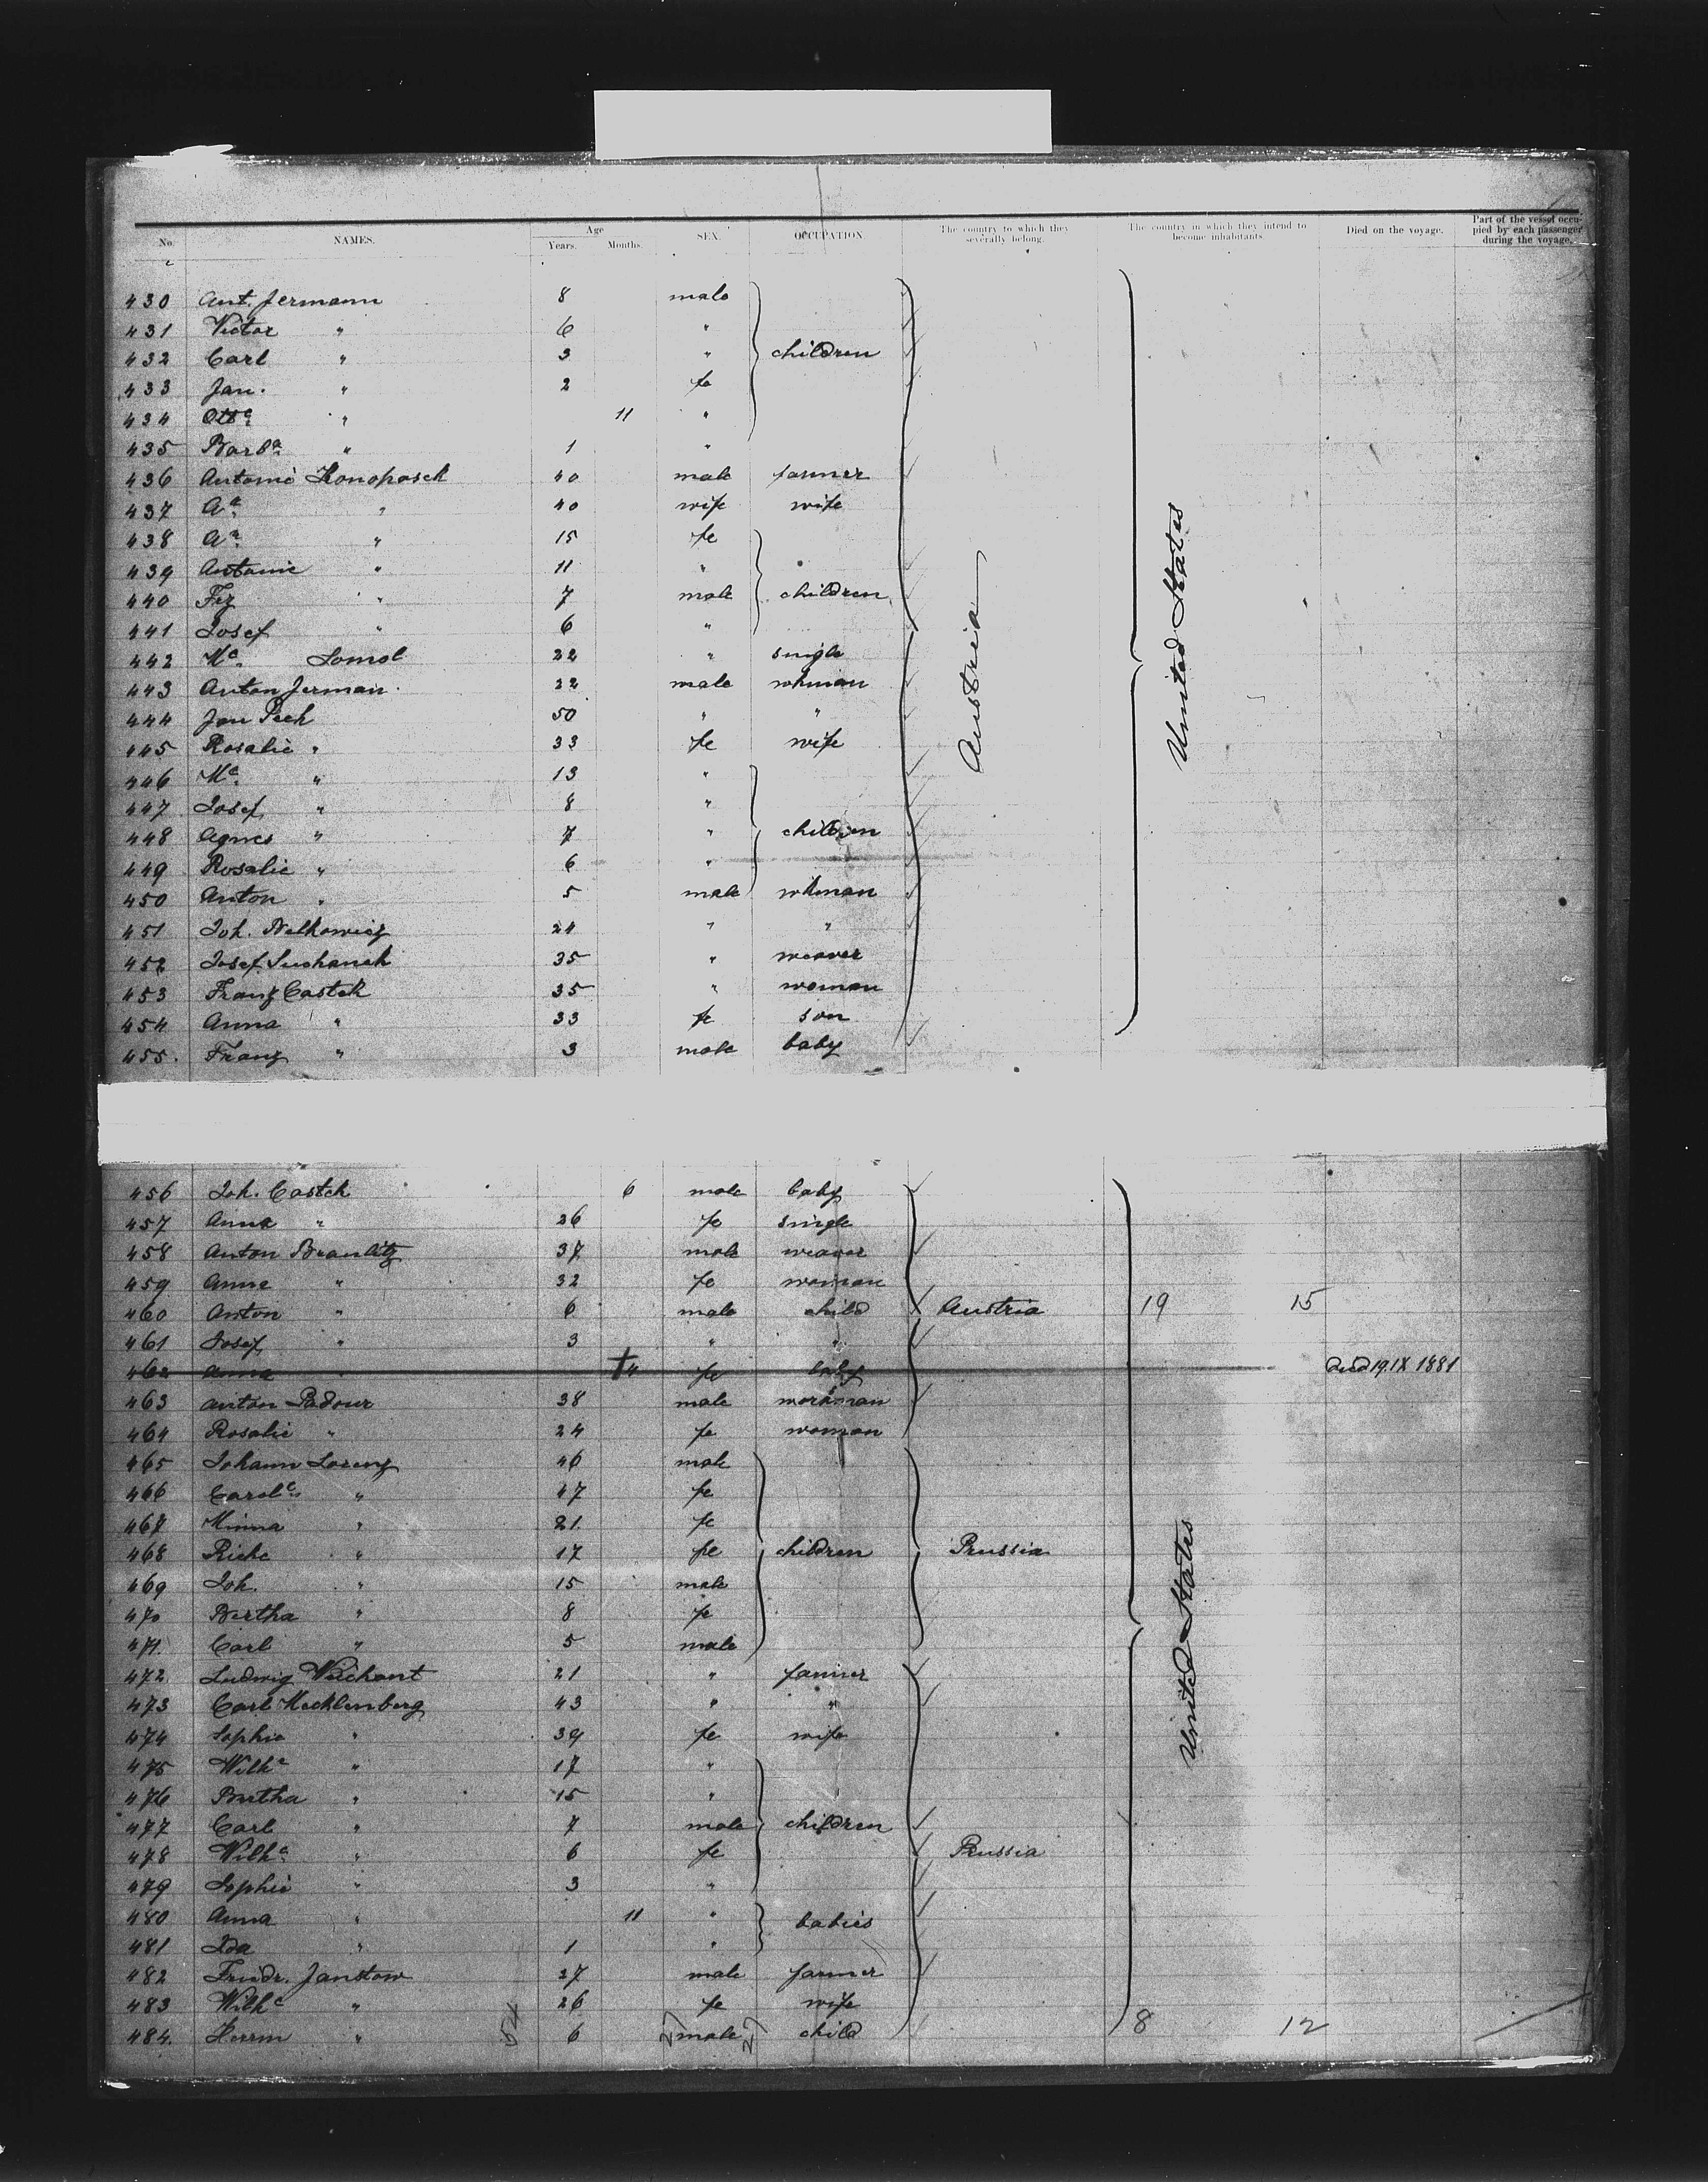 No. NAMES. Age Years. Months. SEX. OCCUPATION. The country to which they severally belong. The country in which they intend to become inhabitants. Died on the voyage. Part of the vessel occupied by each passenger during the voyage.
430 Ant. Jermann 8 male
431 Victor " 6 "
432 Carl " 3 " children
433 Jan. " 2 fe
434 Otta " 11 "
435 Barba " 1 "
436 Antonie Konopasek 40 male farmer
437 Aa " 40 wife wife
438 Aa " 15 fe
439 Antonie " 11 "
440 Frz " 7 male children
441 Josef " 6 "
442 Ma 22 " single
443 Anton Jerman. 22 male wkman
444 Jan Pech 50 " "
445 Rosalie " 33 fe wife
Austria
United States
446 Ma " 13 "
447 Josef " 8 "
448 Agnes " 7 " children
449 Rosalie " 6 "
450 Anton " 5 male wkman
451 Joh. Nelkowicz 24 " "
452 Josef Suchanek 35 " weaver
453 Franz Castek 35 " woman
454 Anna " 33 fe son
455. Franz " 3 male baby
456 Joh. Castek 6 male baby
457 Anna " 26 fe single
458 Anton Branlitz 37 male weaver
459 Anna " 32 fe woman
460 Anton " 6 male child Austria 19 15
461 Josef " 3 " "
462 Anna " fe baby Died 19.IX 1881
463 Anton Padour 38 male workman
464 Rosalie " 24 fe woman
465 Johann Lorenz 46 male
466 Carole " 47 fe
467 Minna " 21 fe
468 Rieke " 17 fe children Prussia
469 Joh. " 15 male
470 Bertha " 8 fe
471. Carl " 5 male
472 Ludwig Weichant 21 " farmer
473 Carl Mecklenberg 43 " "
474 Sophie " 39 fe wife
United States
475 Wilhe " 17 "
476 Bertha " 15 "
477 Carl " 7 male children
478 Wilhe " 6 fe Prussia
479 Sophie " 3 "
480 Anna " 11 " babies
481 Ida " 1 "
482 Friedr. Janstow 27 male farmer
483 Wilhe " 26 fe wife
484. Herm " 54 6 27 male 27 child 8 12